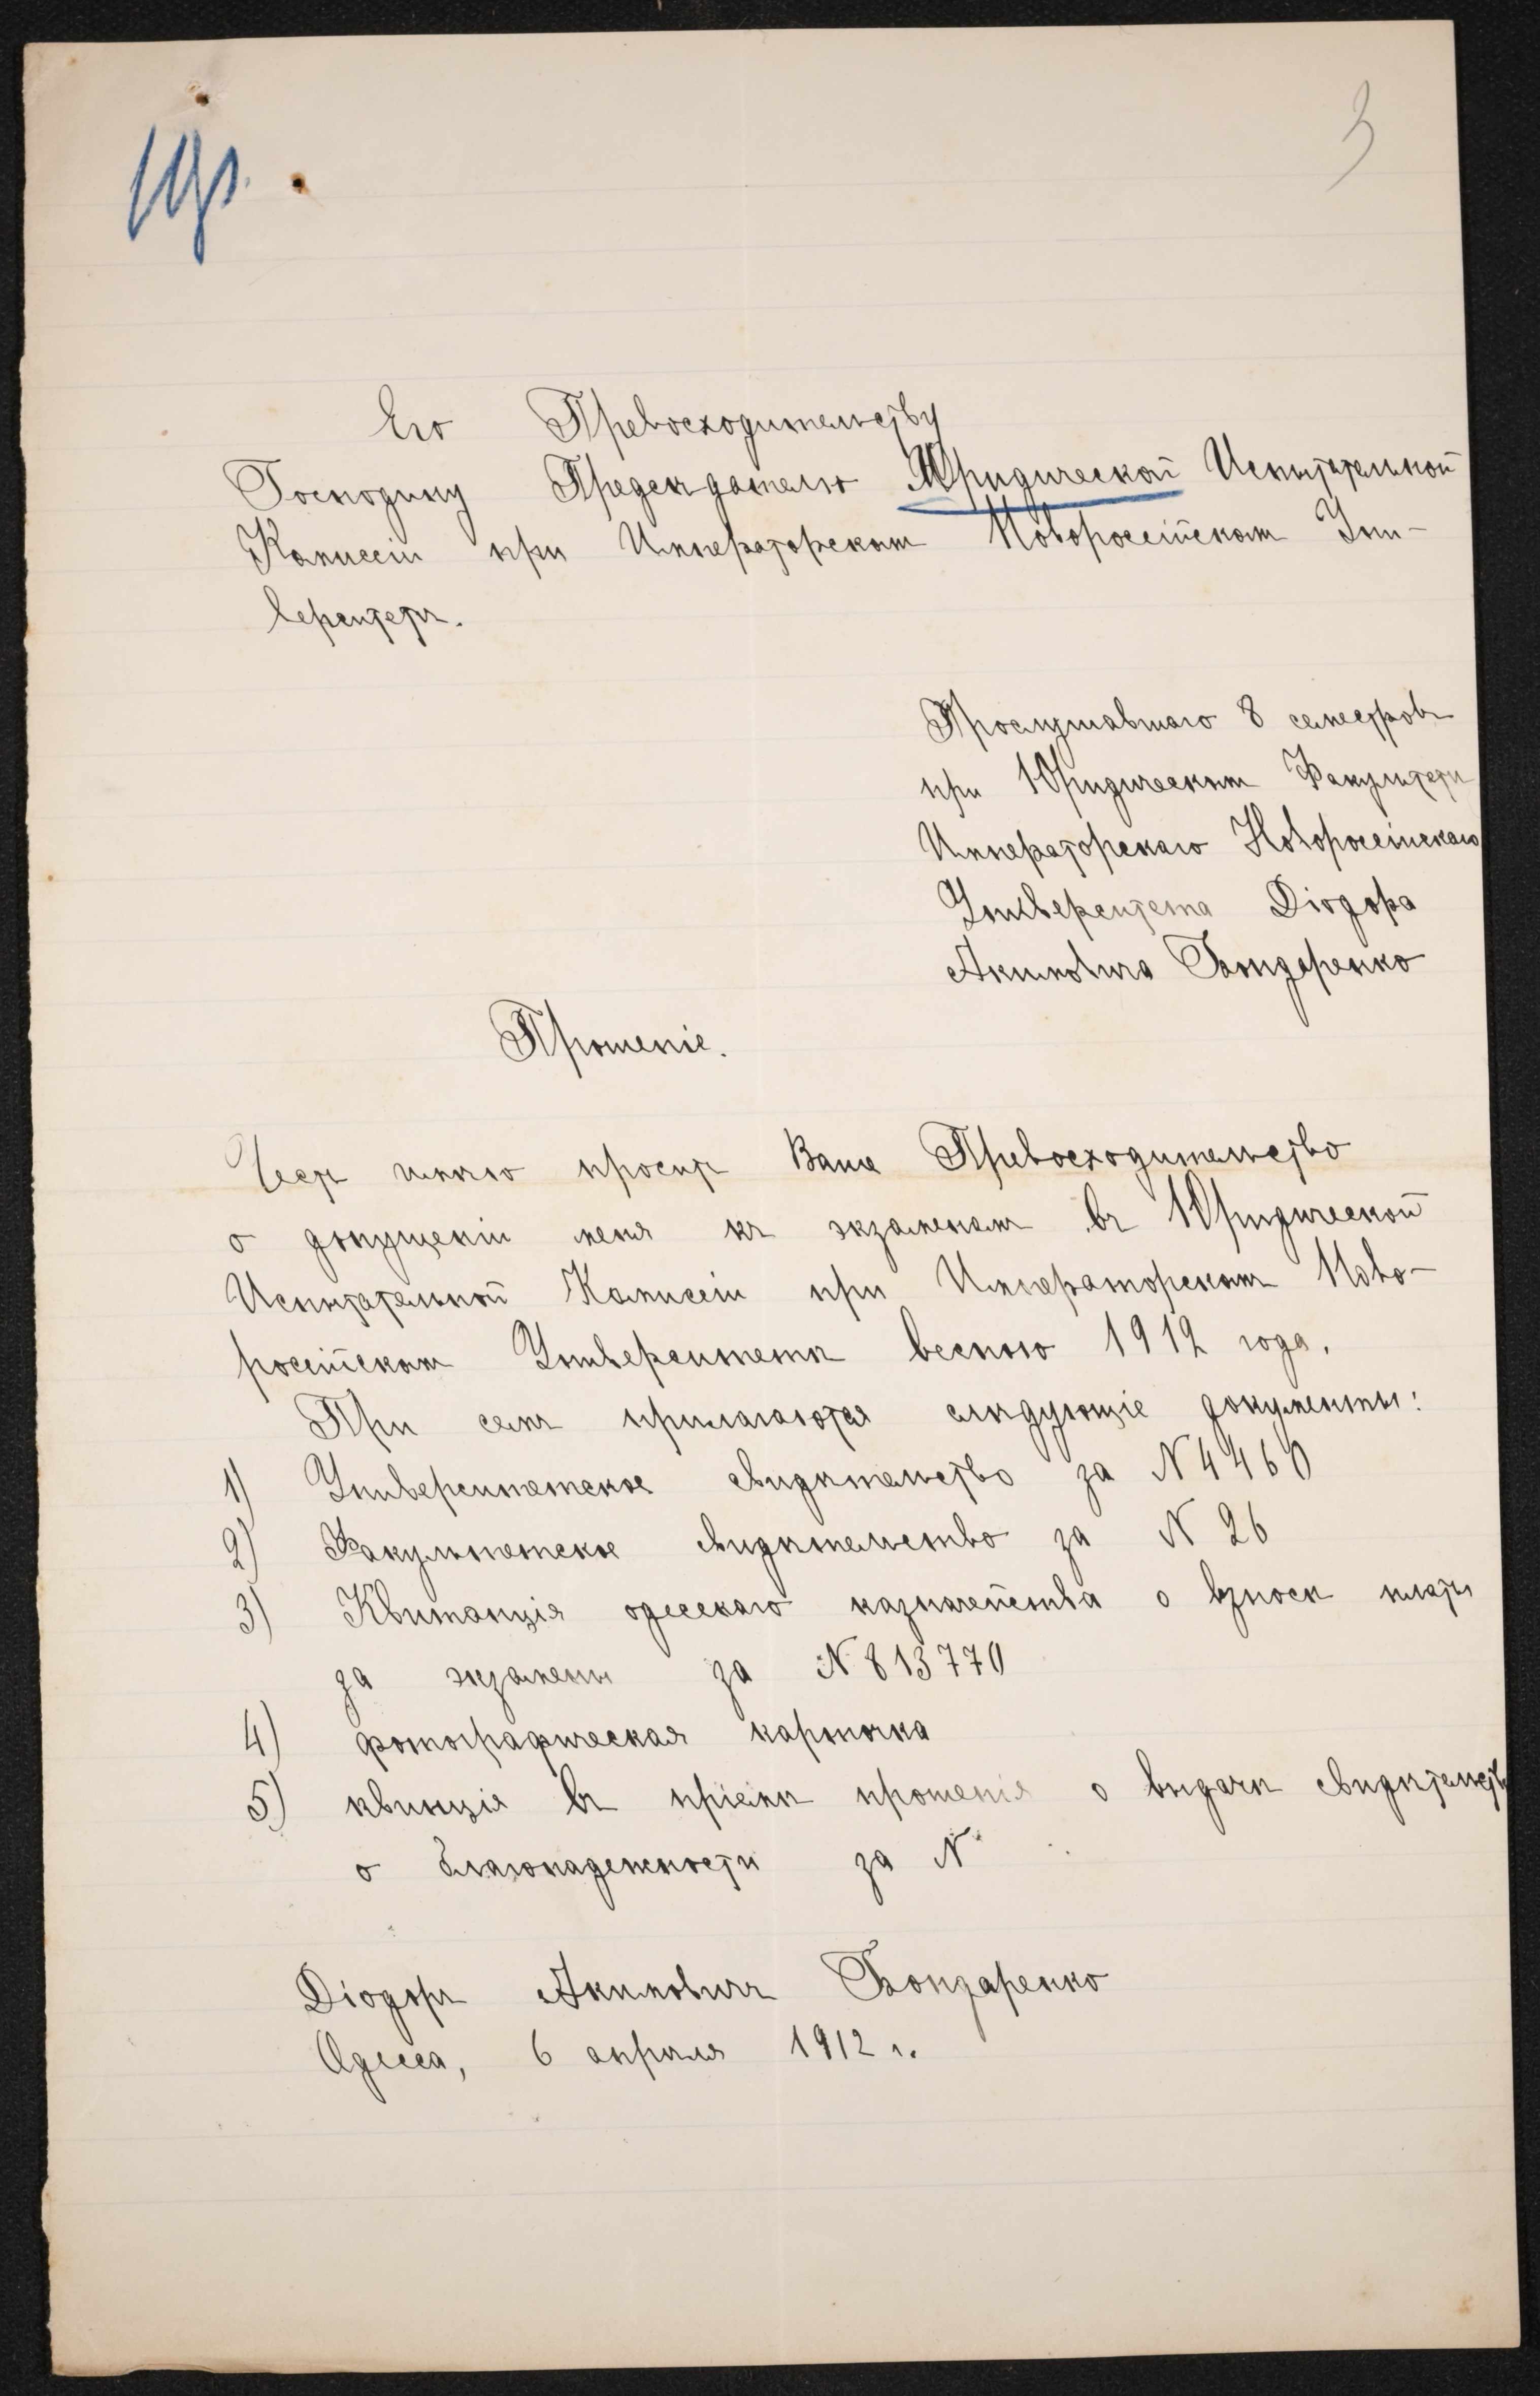 3
Его Превосходительству
Господину Председателю Юридической Испытательной
Комиссіи при Императорскомъ Новороссійскомъ Уни-
верситетѣ.
Прослушавшаго 8 семестровъ
при Юридическомъ Факультетѣ
Императорскаго Новороссійскаго
Университета Діодора
Акимовича Бондаренко
Прошеніе.
Честь имѣю просить Ваше Превосходительство
о допущеніи меня къ экзаменамъ въ Юридической
Испытательной Комиссіи при Императорскомъ Ново-
россійскомъ Университетѣ весною 1912 года.
При семъ прилагаются слѣдующіе документы:
1) Университетское свидѣтельство за N 4460
2) Факультетское свидѣтельство за N 26
3) Квитанція одесскаго казначейства о взносѣ платы
за экзамены за N 813770
4) фотографическая карточка
5) квинція въ пріемѣ прошенія о выдачѣ свидѣтельств
о благонадежности за N
Діодоръ Акимовичъ Бондаренко
Одесса, 6 апрѣля 1912 г.